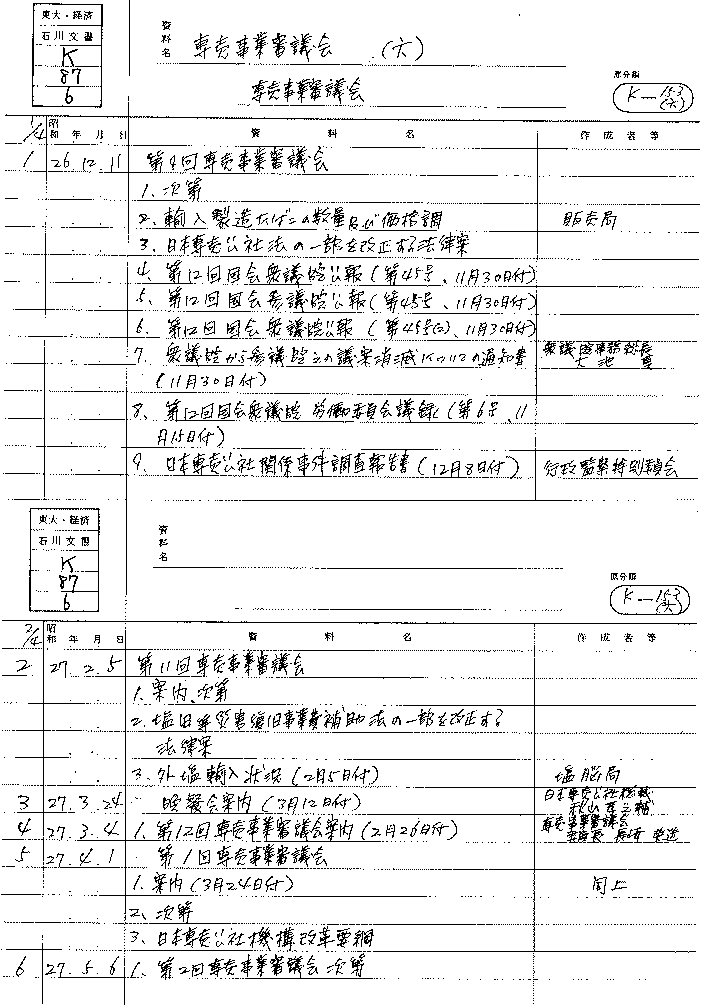 東大・経済
石川文書
K
87
6
資料名
専売事業審議会 (六)
専売事業審議会
原分類
K—153
(六)
1/4 昭和 年 月 日 資 料 名 作 成 者 等
1 26.12.11 第9回専売事業審議会
1. 次第
2. 輸入製造たばこの数量及び価格調 販売局
3. 日本専売公社法の一部を改正する法律案
4. 第12回国会衆議院公報(第45号、11月30日付)
5. 第12回国会参議院公報(第45号、11月30日付)
6. 第12回国会衆議院公報(第45号(2)、11月30日付)
7. 衆議院から参議院への議案消滅についての通知書 衆議院事務総長
(11月30日付) 大池 真
8. 第12回国会衆議院 労働委員会議録(第6号、11
月15日付)
9. 日本専売公社関係事件調査報告書(12月8日付) 行政監察特別委員会
東大・経済
石川文書
K
87
6
資料名
原分類
K—153
(六)
2/4 昭和 年 月 日 資 料 名 作 成 者 等
2 27.2.5 第11回専売事業審議会
1. 案内、次第
2. 塩田等災害復旧事業費補助法の一部を改正する
法律案
3. 外塩輸入状況(2月5日付) 塩脳局
3 27.3.24 晩餐会案内(3月12日付) 日本専売公社総裁
秋山孝之輔
4 27.3.4 1. 第12回専売事業審議会案内(2月26日付) 専売事業審議会
5 27.4.1 第1回専売事業審議会
1. 案内(3月24日付) 同上
2. 次第
3. 日本専売公社機構改革要綱
6 27.5.6 1. 第2回専売事業審議会次第